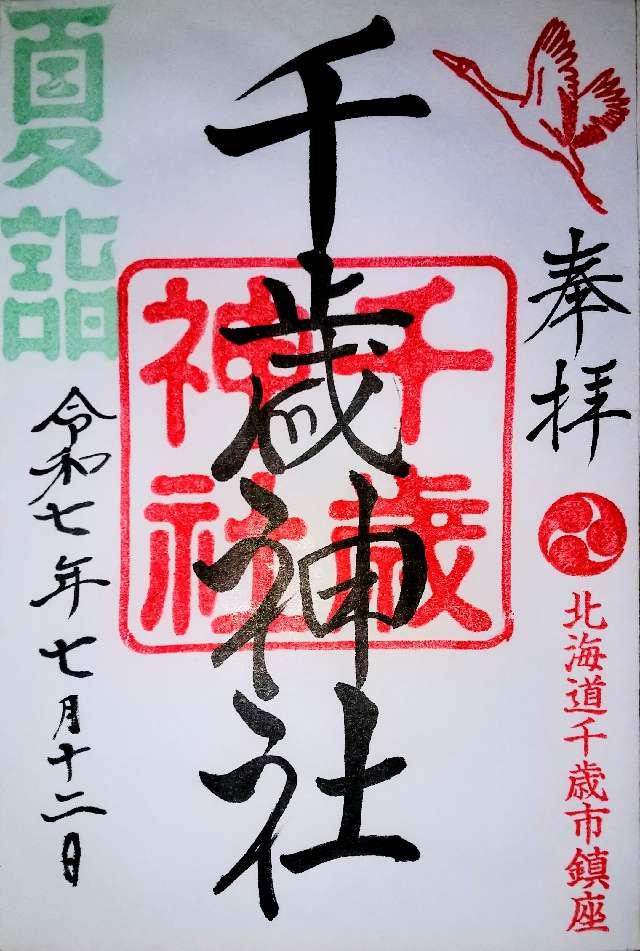 奉拝
北海道千歳市鎮座
千歳神社
千歳
神社
夏詣
令和七年七月十二日